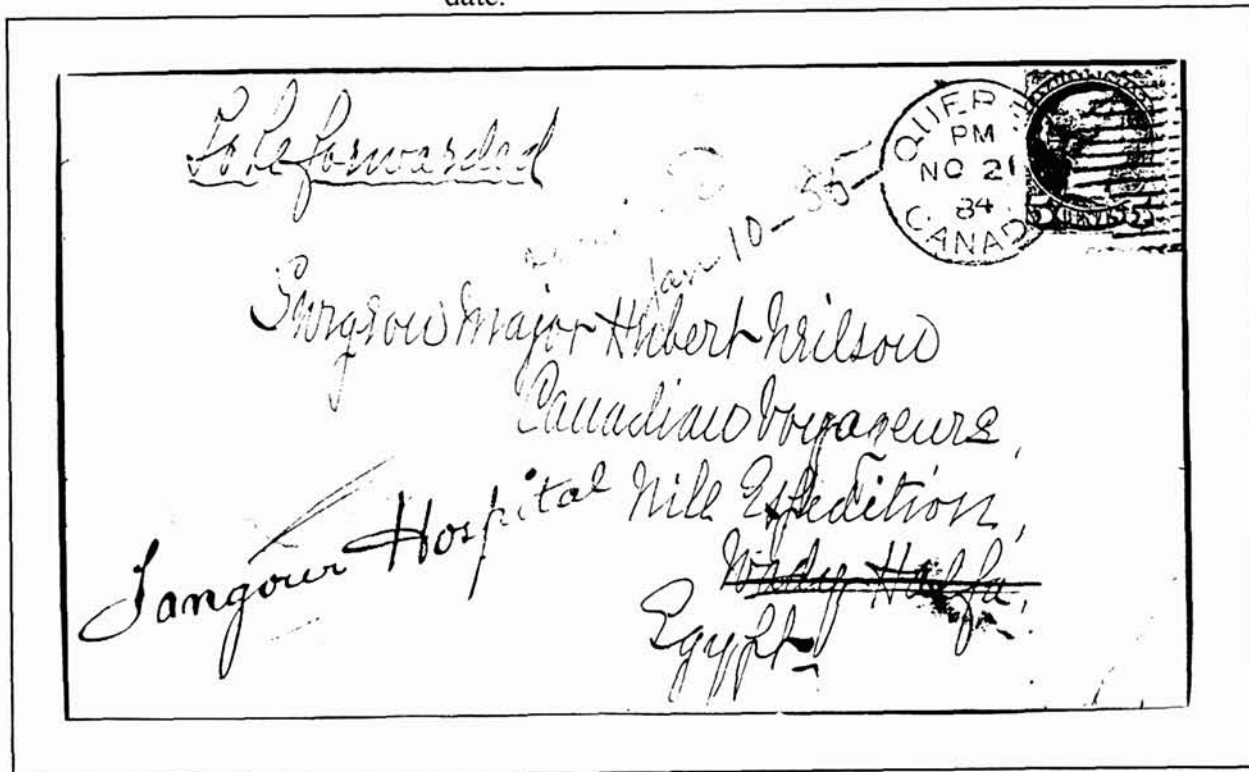 date.
To be forwarded
QUEBE
PM
NO 21
84
CANAD
Jan 10-85
Surgeon Major Hubert Neilson
Canadian Voyageurs,
Nile Expedition,
Wady Halfa,
Egypt
Hospital